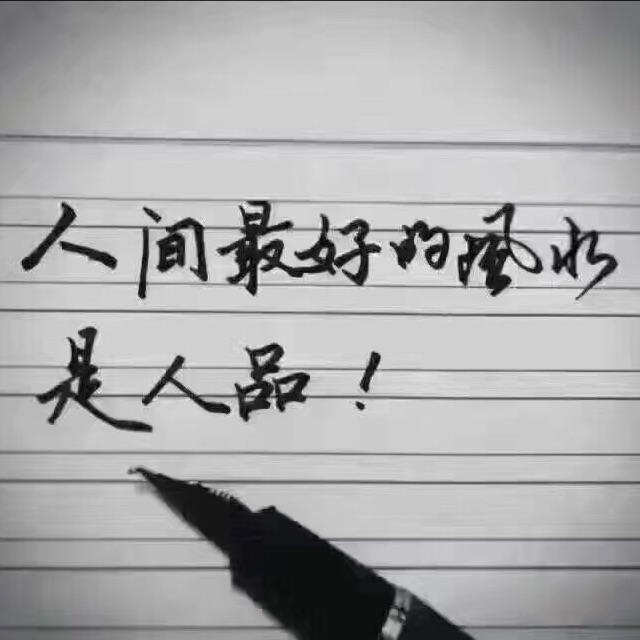 人间最好的風水
是人品！